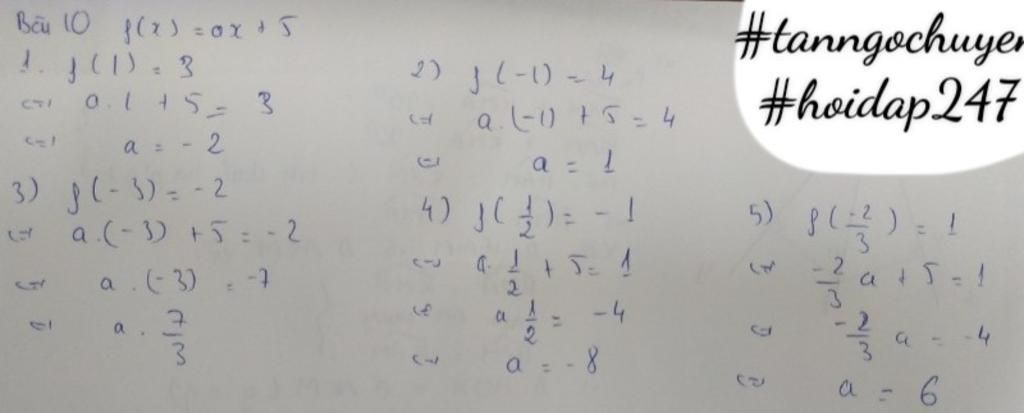 Bài 10 f(x) = ax + 5
1. f(1) = 3
<=> a.1 + 5 = 3
<=> a = -2
2) f(-1) = 4
<=> a.(-1) + 5 = 4
<=> a = 1
3) f(-3) = -2
<=> a.(-3) + 5 = -2
<=> a.(-3) = -7
<=> a . 7/3
4) f(1/2) = -1
<=> a.1/2 + 5 = 1
<=> a 1/2 = -4
<=> a = -8
5) f(-2/3) = 1
<=> -2/3 a + 5 = 1
<=> -2/3 a = -4
<=> a = 6
#tanngochuyen
#hoidap247